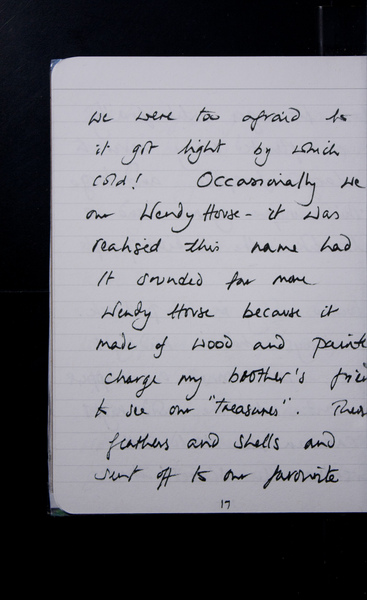 we were too afraid to
it got light by which
cold! Occasionally we
our Wendy House - it was
realised this name had
It sounded far more
Wendy House because it
made of wood and painte
charge my brother's frie
to see our "treasures". Ther
feathers and shells and
sent off to our favourite
17